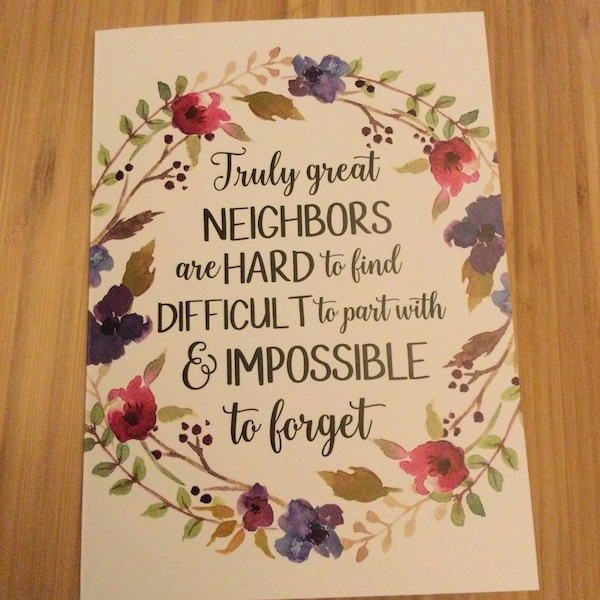 Truly great
NEIGHBORS
are HARD to find
DIFFICULT to part with
& IMPOSSIBLE
to forget